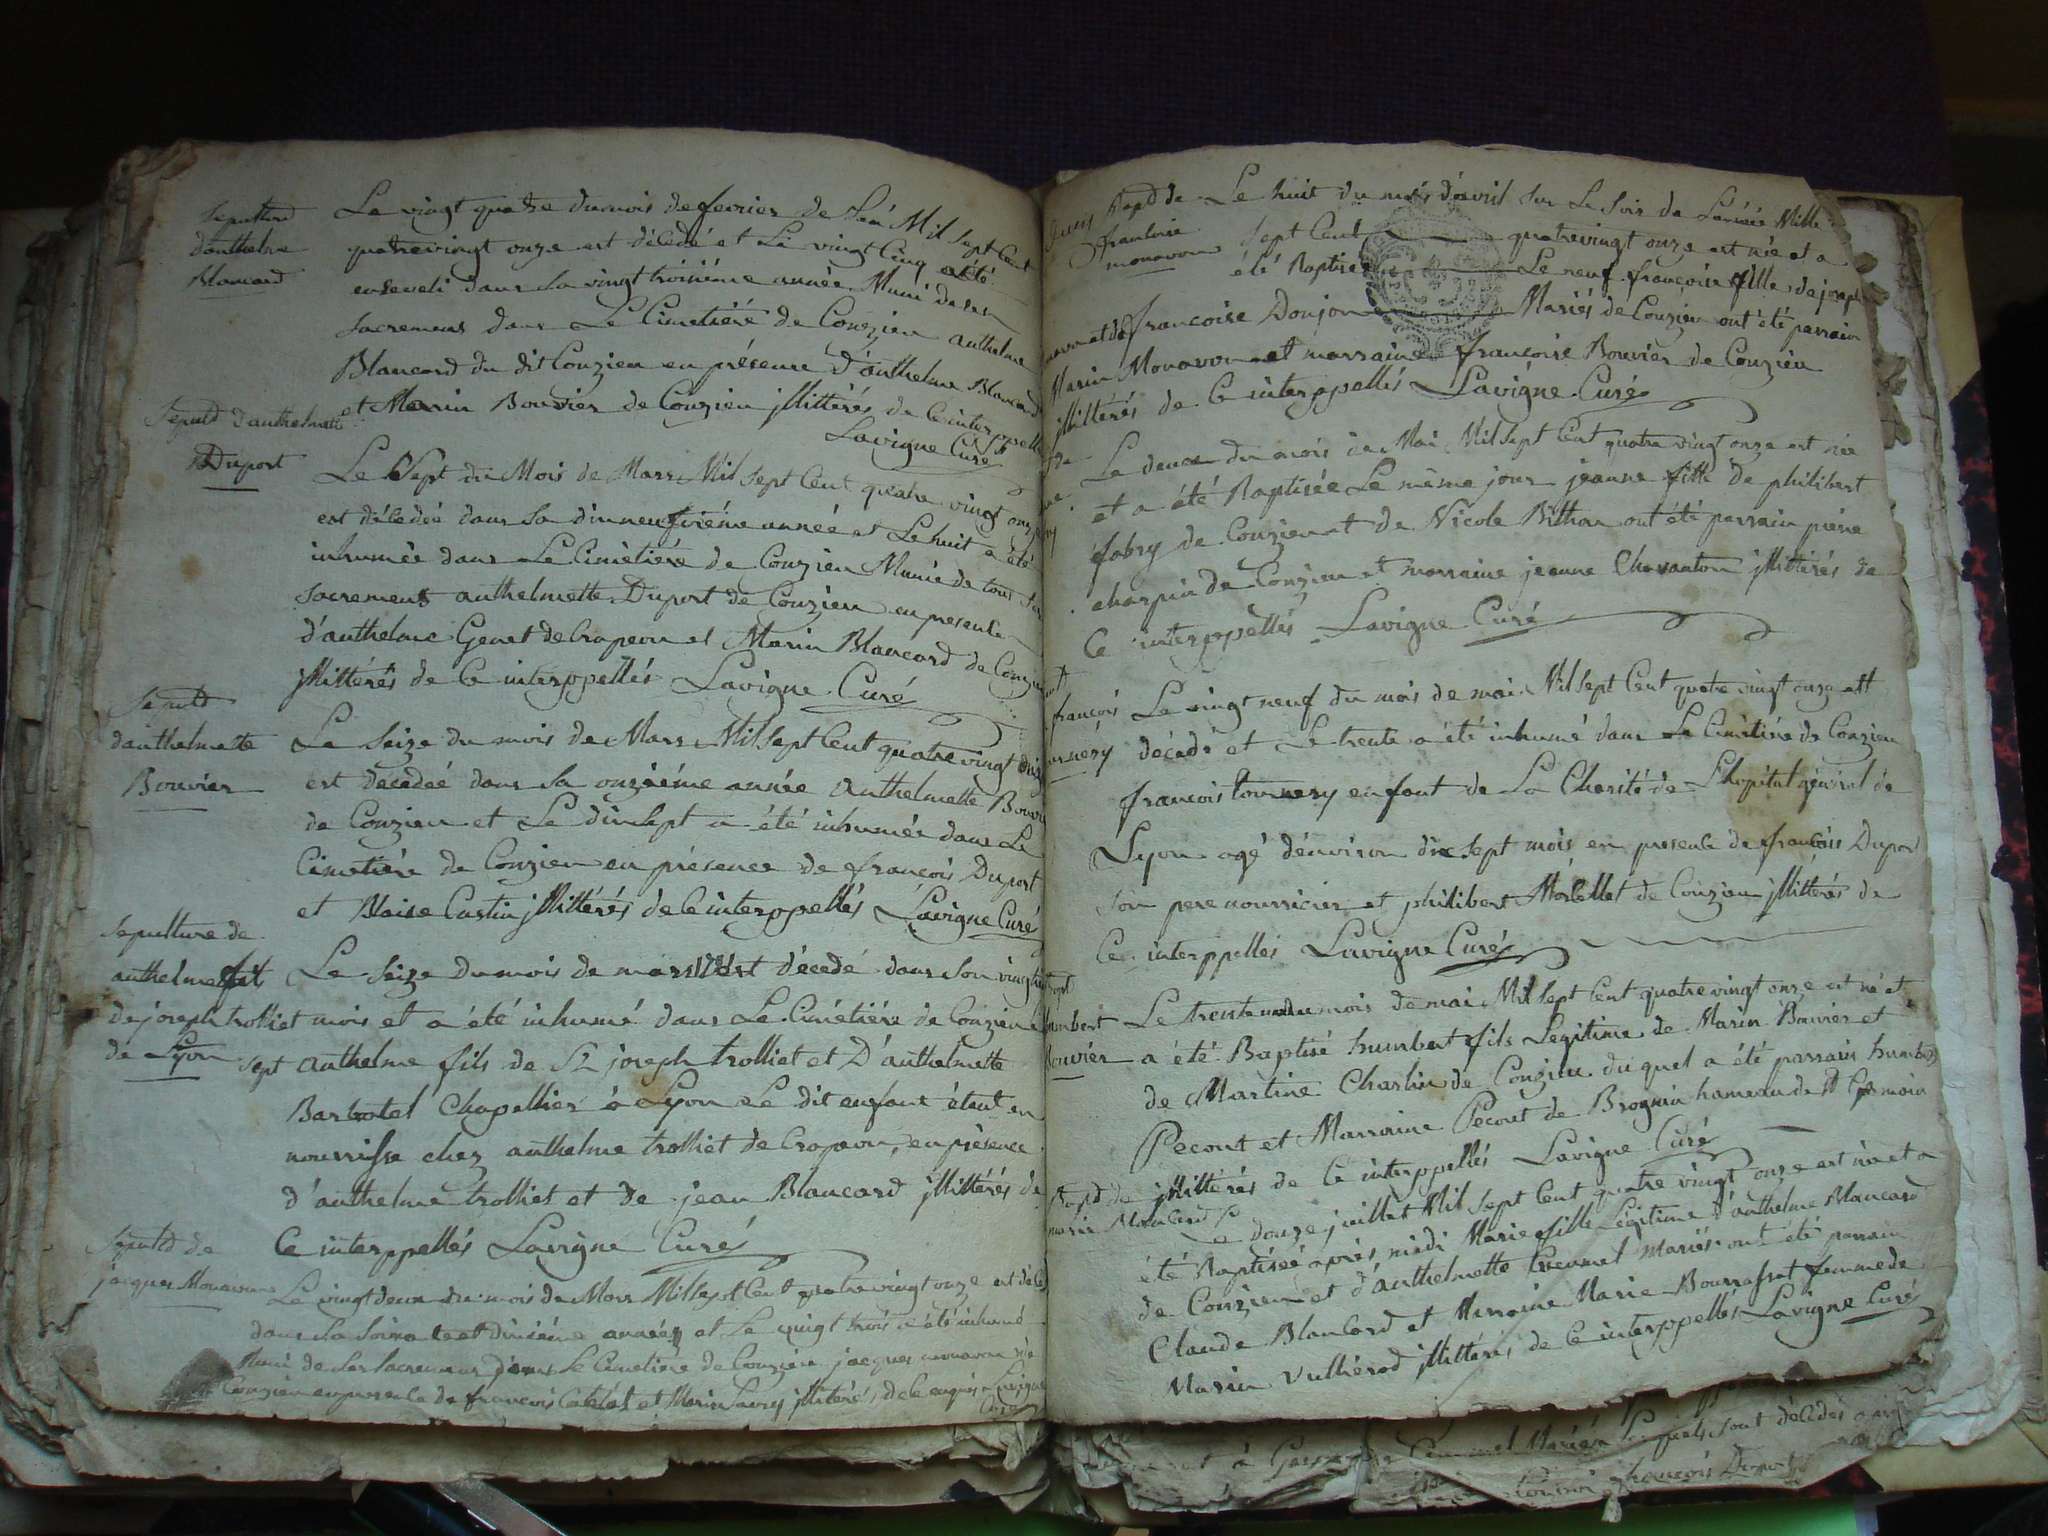 Sepulture
d'anthelme
Blancard
Le vingt quatre du mois de fevrier de L'an Mil sept Cent
quatrevingt onze est décédé et Le vingt Cinq a été
enseveli dans sa vingt troisiéme année Muni de ses
sacremens dans Le Cimetiére de Conzieu anthelme
Blancard du dit Conzieu en présence d'anthelme Blancard
et Marin Bouvier de Conzieu jllittérés de Ce interppellés
Lavigne Curé
Sepult d'anthelmette
Duport
Le Sept du Mois de Mars Mil Sept Cent quatre vingt onze
est décédée dans sa dixneufviéme année et Le huit a été
inhumée dans Le Cimètiére de Conzieu Munie de tous ses
sacremens anthelmette Duport de Conzieu en presence
d'anthelme Genet de Crapeou et Marin Blancard de Conzieu
jllittérés de Ce interppellés Lavigne Curé
Sepult
d'anthelmette
Bouvier
Le Seize du mois de Mars Mil Sept Cent quatre vingt onze
est decedée dans sa onziéme année anthelmette Bouvier
de Conzieu et Le dixsept a été inhumée dans Le
Cimetiére de Conzieu en présence de françois Duport
et Blaise Castin jllittérés de Ce interppellés Lavigne Curé
Sepulture de
anthelme fils
de joseph trolliet
de Lyon
Le Seize du mois de mars 1791 est décedé dans son vingt
sept mois et a été inhumé dans Le Cimétiére de Conzieu
anthelme fils de Sr joseph trolliet et D'anthelmette
Barbotel Chapellier à Lyon Le dit enfant étant en
nourrisse chez anthelme trolliet de Crapeou, en présence
d'anthelme trolliet et de jean Blancard jllittérés de
Ce interppellés Lavigne Curé
Sepult de
jacques Monavon
Le vingt deux du mois de Mars Mil Sept Cent quatre vingt onze est décédé
dans sa soixante et dixiéme année et Le vingt trois a été inhumé
Muni de ses Sacremens dans Le Cimetiére de Conzieu jacques monavon de
Conzieu en presence de françois et Marin jllitérés de Ce enquis Lavigne
Curé
Bapt de
françoise
monavon
Le huit du mois d'avril sur Le Soir de L'année Mille
sept Cent quatrevingt onze est née et a
été Baptisée Le neuf françoise fille de joseph
monavon et de françoise Donjon Mariés de Conzieu ont été parrain
Marin Monavon et marraine françoise Bouvier de Conzieu
jllittérés de Ce interppellés Lavigne Curé
Le deux du mois de Mai Mil Sept Cent quatre vingt onze est née
et a été Baptisée Le même jour jeanne fille de philibert
fabry de Conzieu et de Nicole Billion ont été parrain pierre
charpin de Conzieu et marraine jeanne Chavanton jllittérés de
Ce interppellés Lavigne Curé
françois
tonnery
Le vingt neuf du mois de mai Mil Sept Cent quatre vingt onze est
décédé et Le trente a été inhumé dans Le Cimétiére de Conzieu
françois tonnery enfant de La Charité de L'hopital général de
Lyon agé d'environ dix sept mois en presence de francois Duport
son pere nourricier et philibert Morcellet de Conzieu jllittérés de
Ce interppellés Lavigne Curé
Bapt
humbert
Bouvier
Le trente du mois de mai Mil Sept Cent quatre vingt onze est né et
a été Baptisé humbert fils Legitime de Marin Bouvier et
de Martine Charlin de Conzieu duquel a été parrain humbert
Pecout et Marraine Pecout de Brognin hameau de St Germain
jllittérés de Ce interppellés Lavigne Curé
Bapt de
marie Blancard
Le douze juillet Mil Sept Cent quatre vingt onze est née et a
été Baptisée aprés midi Marie fille Légitime d'anthelme Blancard
de Conzieu et d'anthelmette treunet mariés ont été parrain
Claude Blancard et Marraine Marie Bourrassat femme de
Marin Vulliérod jllittérés de Ce interppellés Lavigne Curé
sont décédés
françois Duport